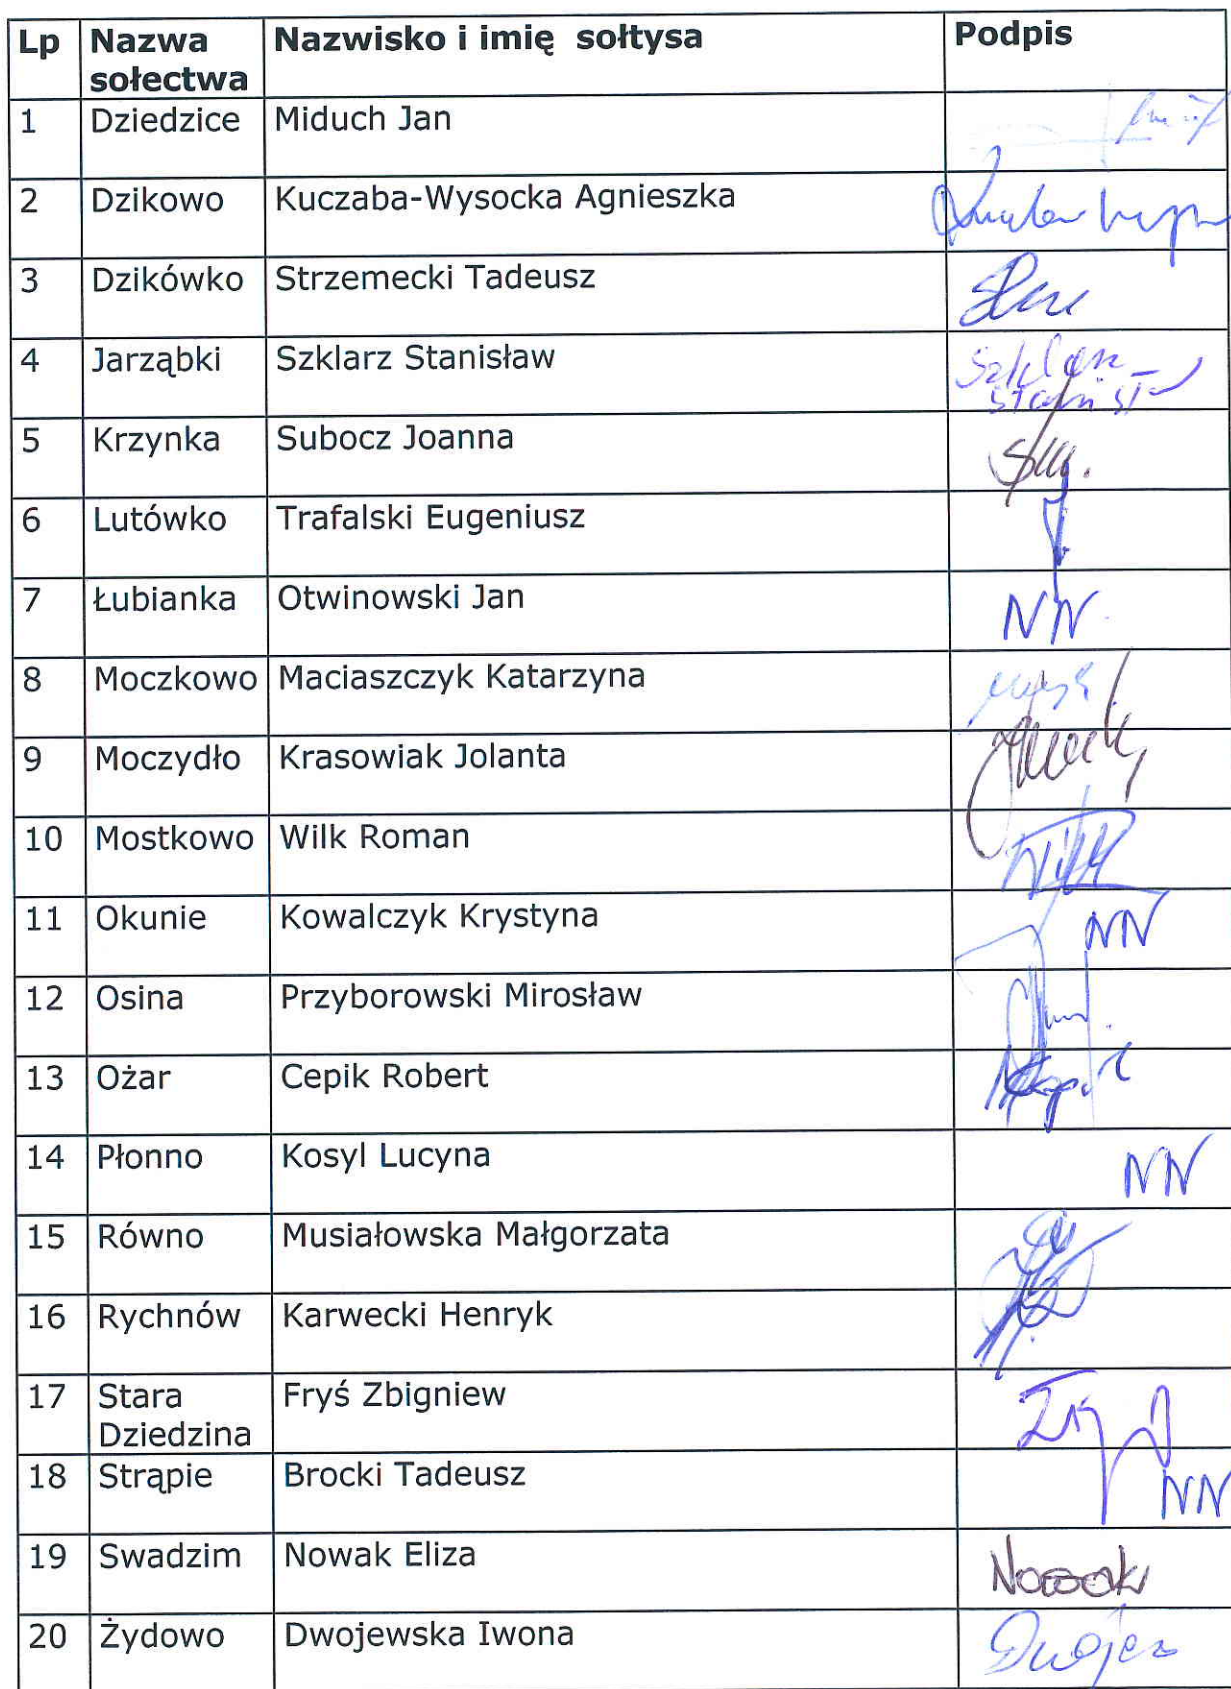 Lp Nazwa sołectwa Nazwisko i imię sołtysa Podpis
1 Dziedzice Miduch Jan
2 Dzikowo Kuczaba-Wysocka Agnieszka
3 Dzikówko Strzemecki Tadeusz
4 Jarząbki Szklarz Stanisław Szklarz
5 Krzynka Subocz Joanna
6 Lutówko Trafalski Eugeniusz
7 Łubianka Otwinowski Jan NN
8 Moczkowo Maciaszczyk Katarzyna
9 Moczydło Krasowiak Jolanta
10 Mostkowo Wilk Roman Wilk
11 Okunie Kowalczyk Krystyna NN
12 Osina Przyborowski Mirosław
13 Ożar Cepik Robert
14 Płonno Kosyl Lucyna NN
15 Równo Musiałowska Małgorzata
16 Rychnów Karwecki Henryk
17 Stara Dziedzina Fryś Zbigniew
18 Strąpie Brocki Tadeusz NN
19 Swadzim Nowak Eliza Nowak
20 Żydowo Dwojewska Iwona